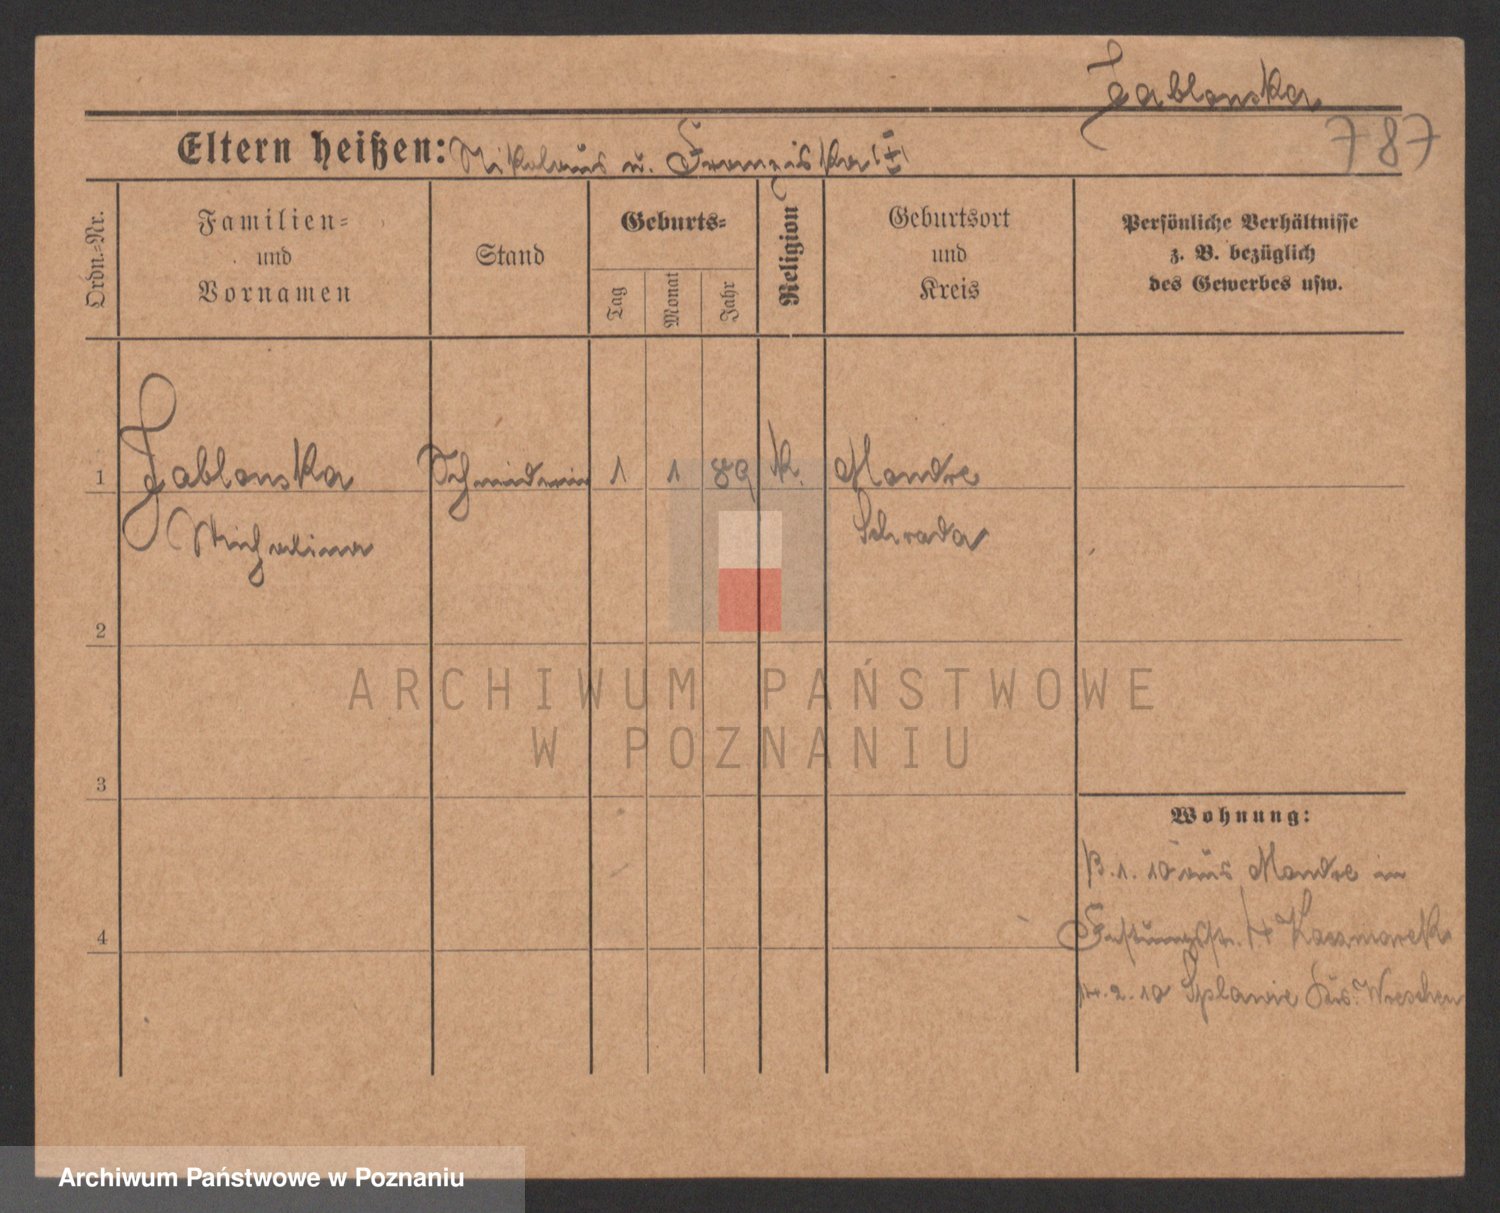 Jablonska
787
Eltern heißen: Nikolaus u. Franziska (†)
Ordn.-Nr.
Familien-
und
Vornamen
Stand
Geburts-
Tag
Monat
Jahr
Religion
Geburtsort
und
Kreis
Persönliche Verhältnisse
z. B. bezüglich
des Gewerbes usw.
1 Jablonska Schneiderin 1 1 89 k. Mondre
Michalina Schroda
2
3
4
ARCHIWUM PAŃSTWOWE
W POZNANIU
Wohnung:
13.1.10 aus Mondre in
Festungsstr. Kaczmarek
14.2.10 Splawie Krs. Wreschen
Archiwum Państwowe w Poznaniu